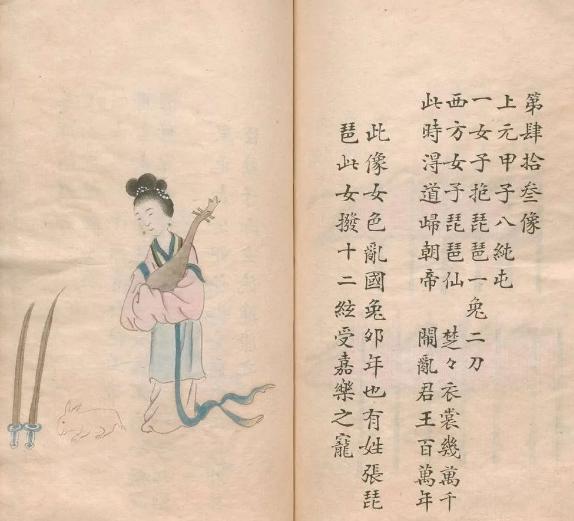 第肆拾叁像
上元甲子八純屯
一女子抱琵琶一兔二刀
西方女子琵琶仙　楚々衣裳幾萬千
此時淂道㱕朝帝　閙亂君王百萬年
此像女色亂國兔夘年也有姓張琵
琶此女撥十二絃受嘉樂之寵